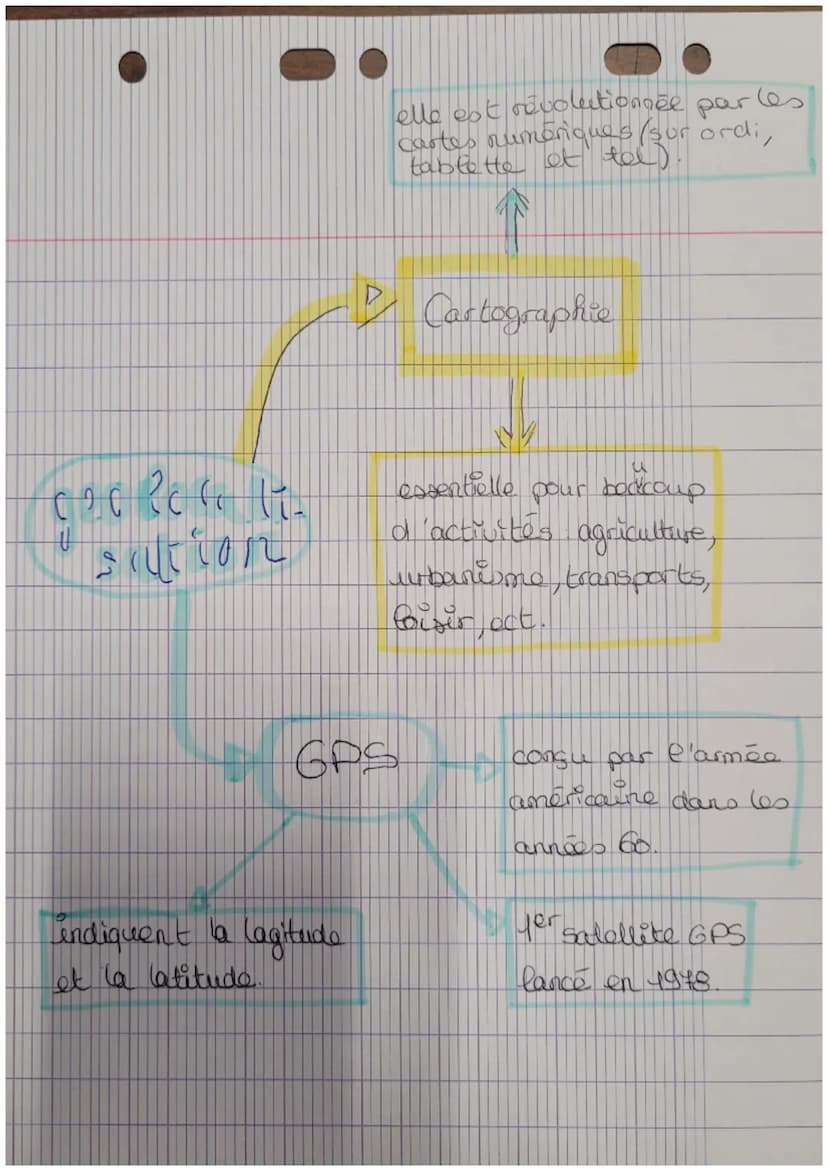 elle est révolutionnée par les
cartes numériques (sur ordi,
tablette et tel).
Cartographie
essentielle pour beaucoup
d'activités agriculture,
urbanisme, transports,
loisir, ect.
GPS
conçu par l'armée
américaine dans les
années 60.
indiquent la lagitude
et la latitude.
1er satellite GPS
lancé en 1978.